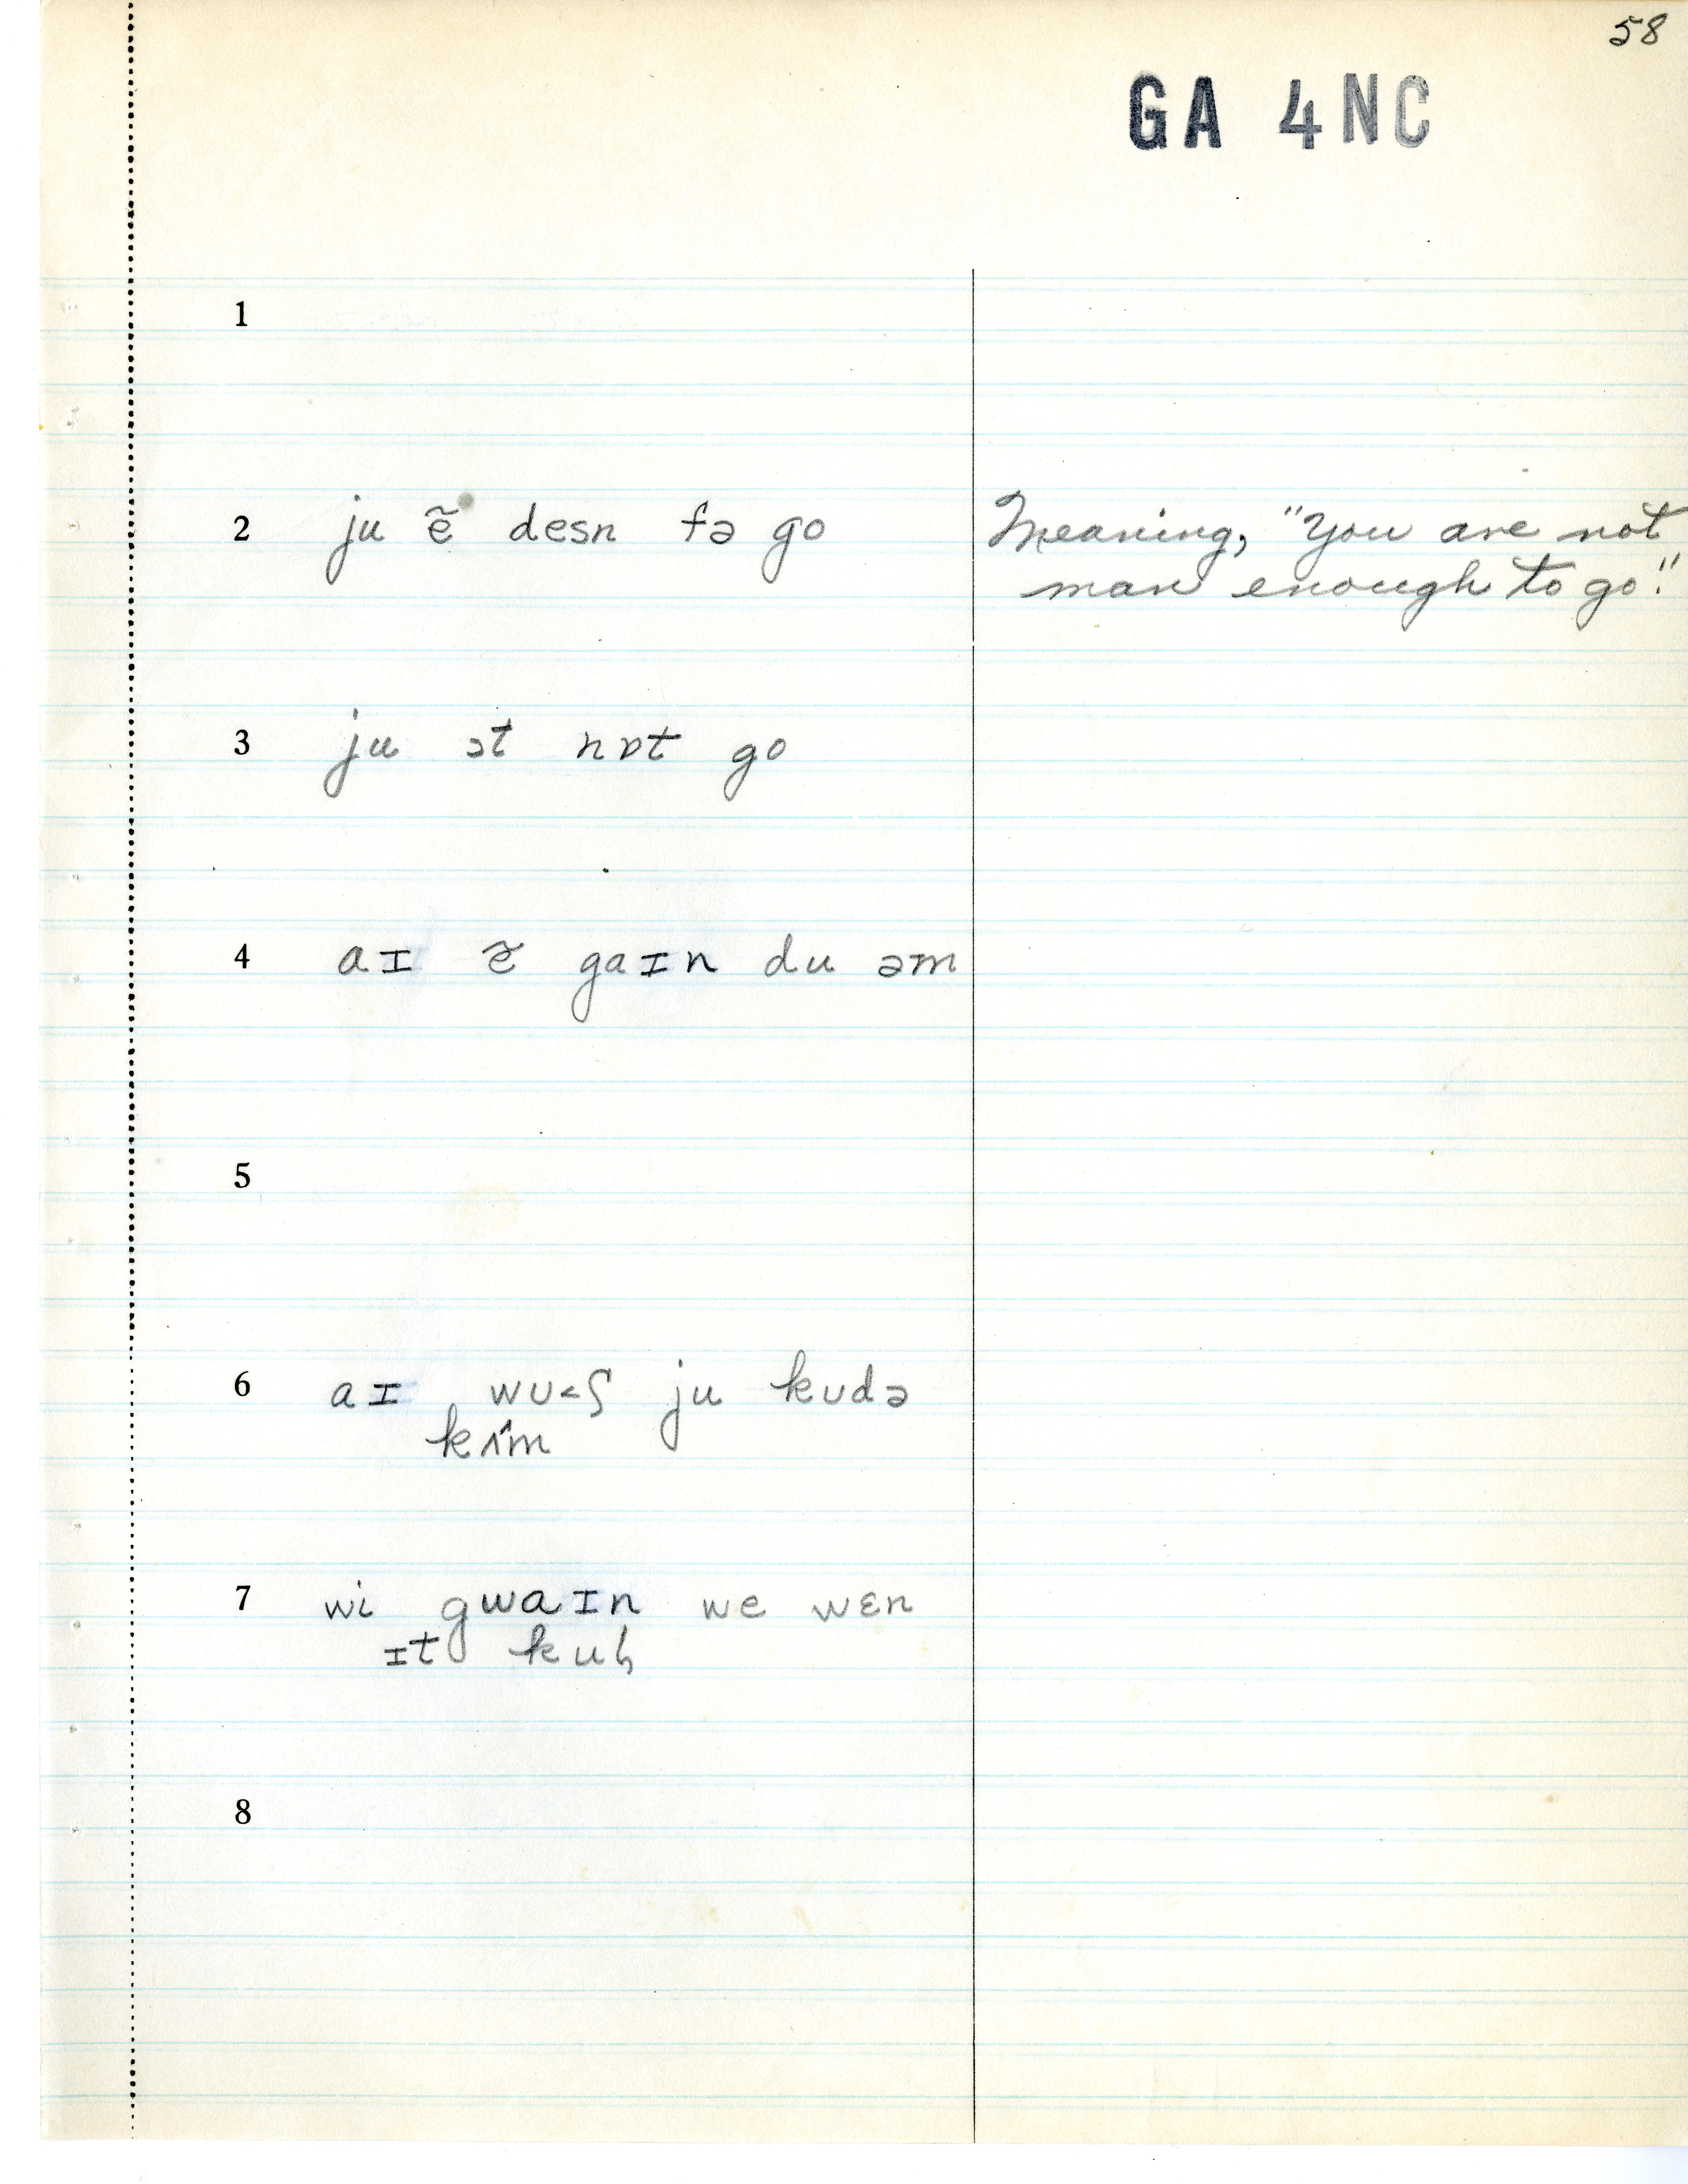 58
GA 4NC
1
2 ju ẽ desn fə go Meaning, "You are not
man enough to go."
3 ju ɔt nɒt go
4 aɪ ẽ gaɪn du əm
5
6 aɪ wʊ<ʃ ju kʊdə
kʌ^m
7 wi gwaɪn we wɛn
ɪt kuɫ
8